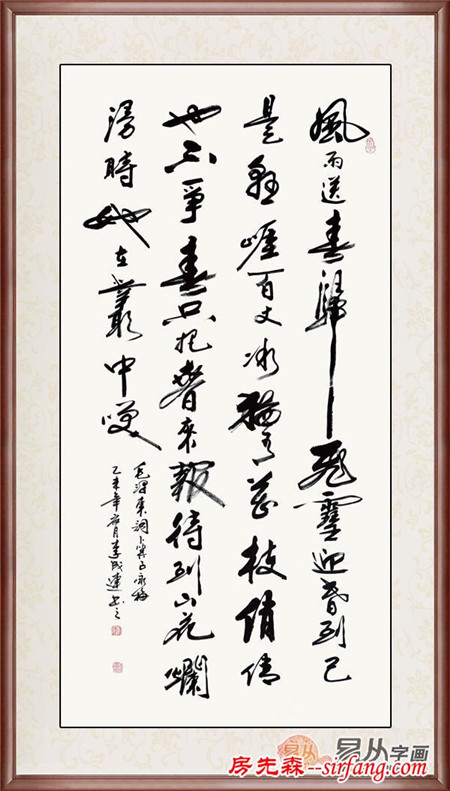 風雨送春歸飛雪迎春到已
是懸崖百丈冰猶有花枝俏俏
也不爭春只把春來報待到山花爛
漫時她在叢中咲
毛澤東詞卜算子詠梅
乙未年月李成連書之
易从字画
房先森--sirfang.com